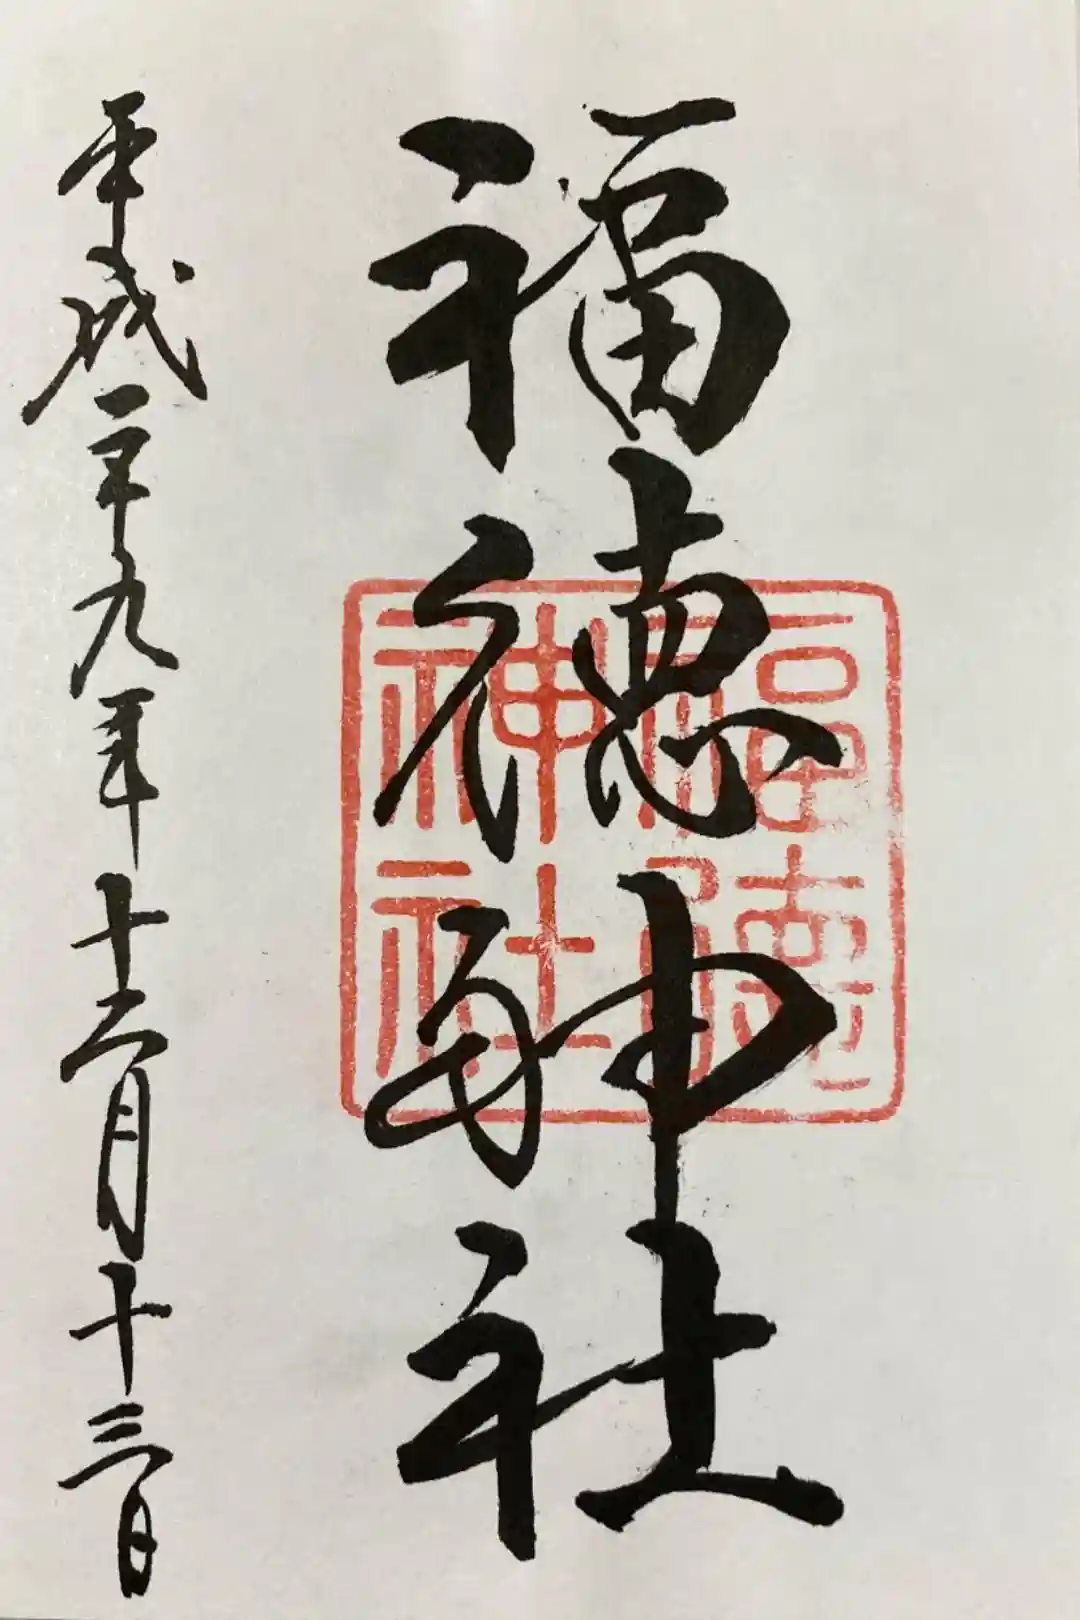 福徳神社
平成二十九年十二月十三日
福徳
神社